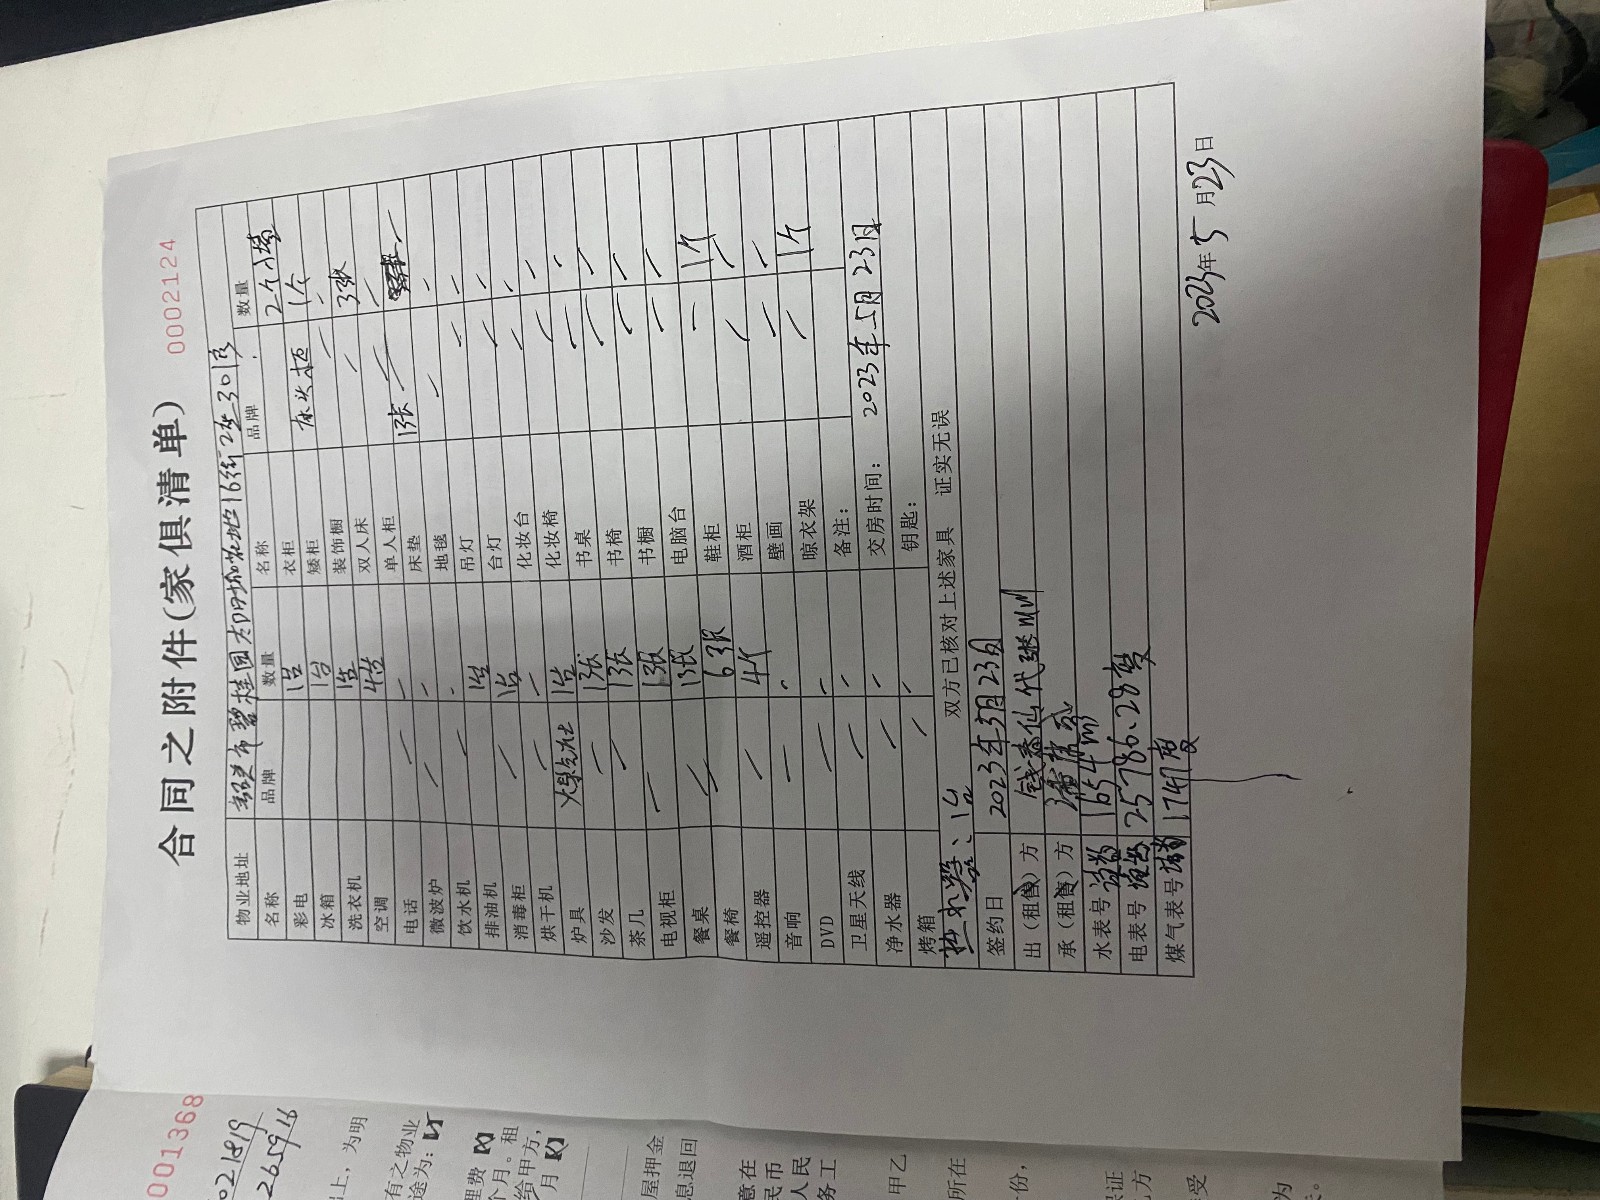 合同之附件(家俱清单)
0002124
物业地址 韶关市碧桂园太阳城花地16街2座301房
名称 品牌 数量 名称 品牌 数量
彩电 1台 衣柜 2个
冰箱 1台 矮柜 床头柜 1个
洗衣机 1台 装饰橱
空调 4台 双人床 3张
电话 单人柜
微波炉 床垫 1张
饮水机 地毯
排油机 1台 吊灯
消毒柜 1台 台灯
烘干机 化妆台
炉具 1台 化妆椅
沙发 1张 书桌
茶几 1张 书椅
电视柜 1张 书橱
餐桌 1张 电脑台
餐椅 6张 鞋柜 1个
遥控器 4个 酒柜
音响 壁画
DVD 晾衣架 1个
卫星天线 备注:
净水器 交房时间: 2023年5月23日
烤箱 钥匙:
热水器、1台 双方已核对上述家具 证实无误
签约日 2023年5月23日
出(租售)方
承(租售)方
水表号 1654
电表号 25786.28度
煤气表号 1747度
2023年5月23日
001368
2021819
2659
上,为明
有之物业
途为:
理费
个月。租
给甲方,
月
屋押金
息退回
意在
民币
人民
务工
甲乙
所在
份,
保证
方
受
为